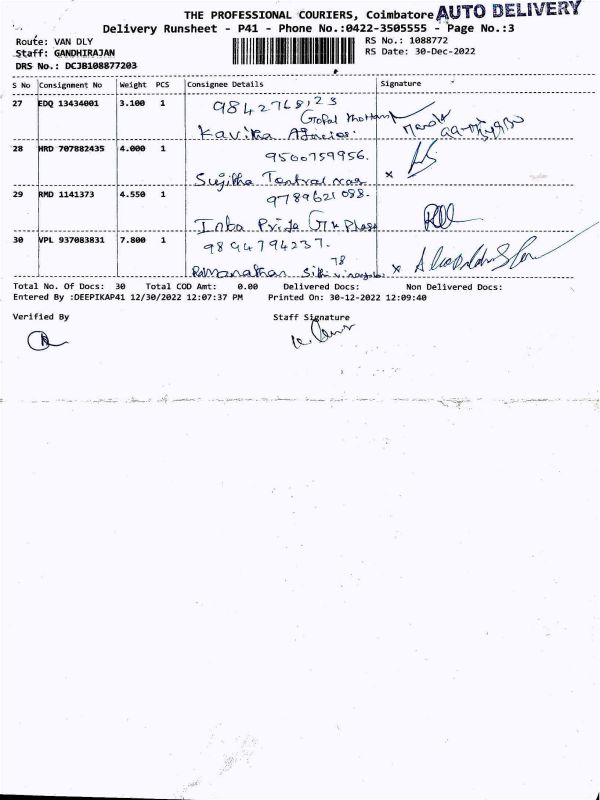 THE PROFESSIONAL COURIERS, Coimbatore AUTO DELIVERY
Delivery Runsheet - P41 - Phone No.:0422-3505555 - Page No.:3
Route: VAN DLY RS No.: 1088772
Staff: GANDHIRAJAN RS Date: 30-Dec-2022
DRS No.: DCJB108877203
S No Consignment No Weight PCS Consignee Details Signature
27 EDQ 13434001 3.100 1 9842768123
Gopal thottam
Kavitha Agencies.
28 HRD 707882435 4.000 1 9500759956.
Sujitha nagar x
29 RMD 1141373 4.550 1 9789621088.
Inba Priya
30 VPL 937083831 7.800 1 9894794237.
78
Ramanathan x
Total No. Of Docs: 30 Total COD Amt: 0.00 Delivered Docs: Non Delivered Docs:
Entered By :DEEPIKAP41 12/30/2022 12:07:37 PM Printed On: 30-12-2022 12:09:40
Verified By Staff Signature